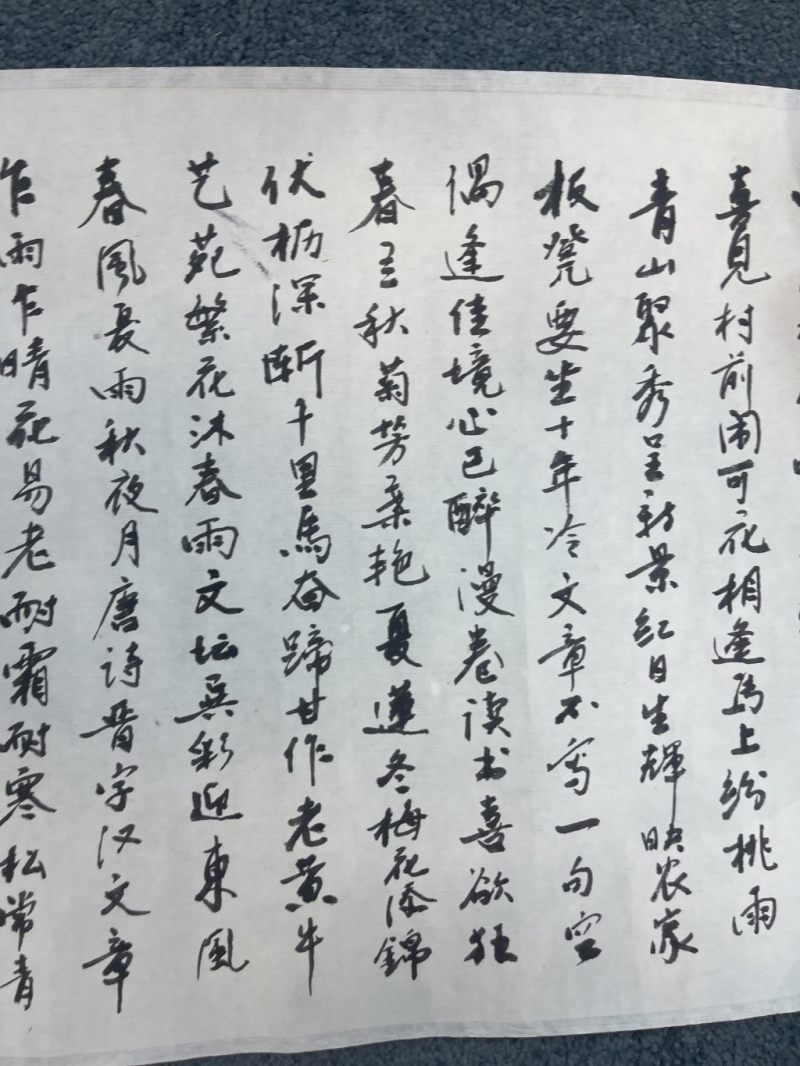 喜见村前闹可花相逢马上纷桃雨
青山聚秀呈新景红日生辉映农家
板凳要坐十年冷文章不写一句空
偶逢佳境心已醉漫卷读书喜欲狂
春兰秋菊芳艳夏莲冬梅花添錦
伏枥深惭千里馬奋蹄甘作老黄牛
艺苑繁花沐春雨文坛异彩迎東風
春風夏雨秋夜月唐诗晋字汉文章
乍雨乍晴花易老耐霜耐寒松常青